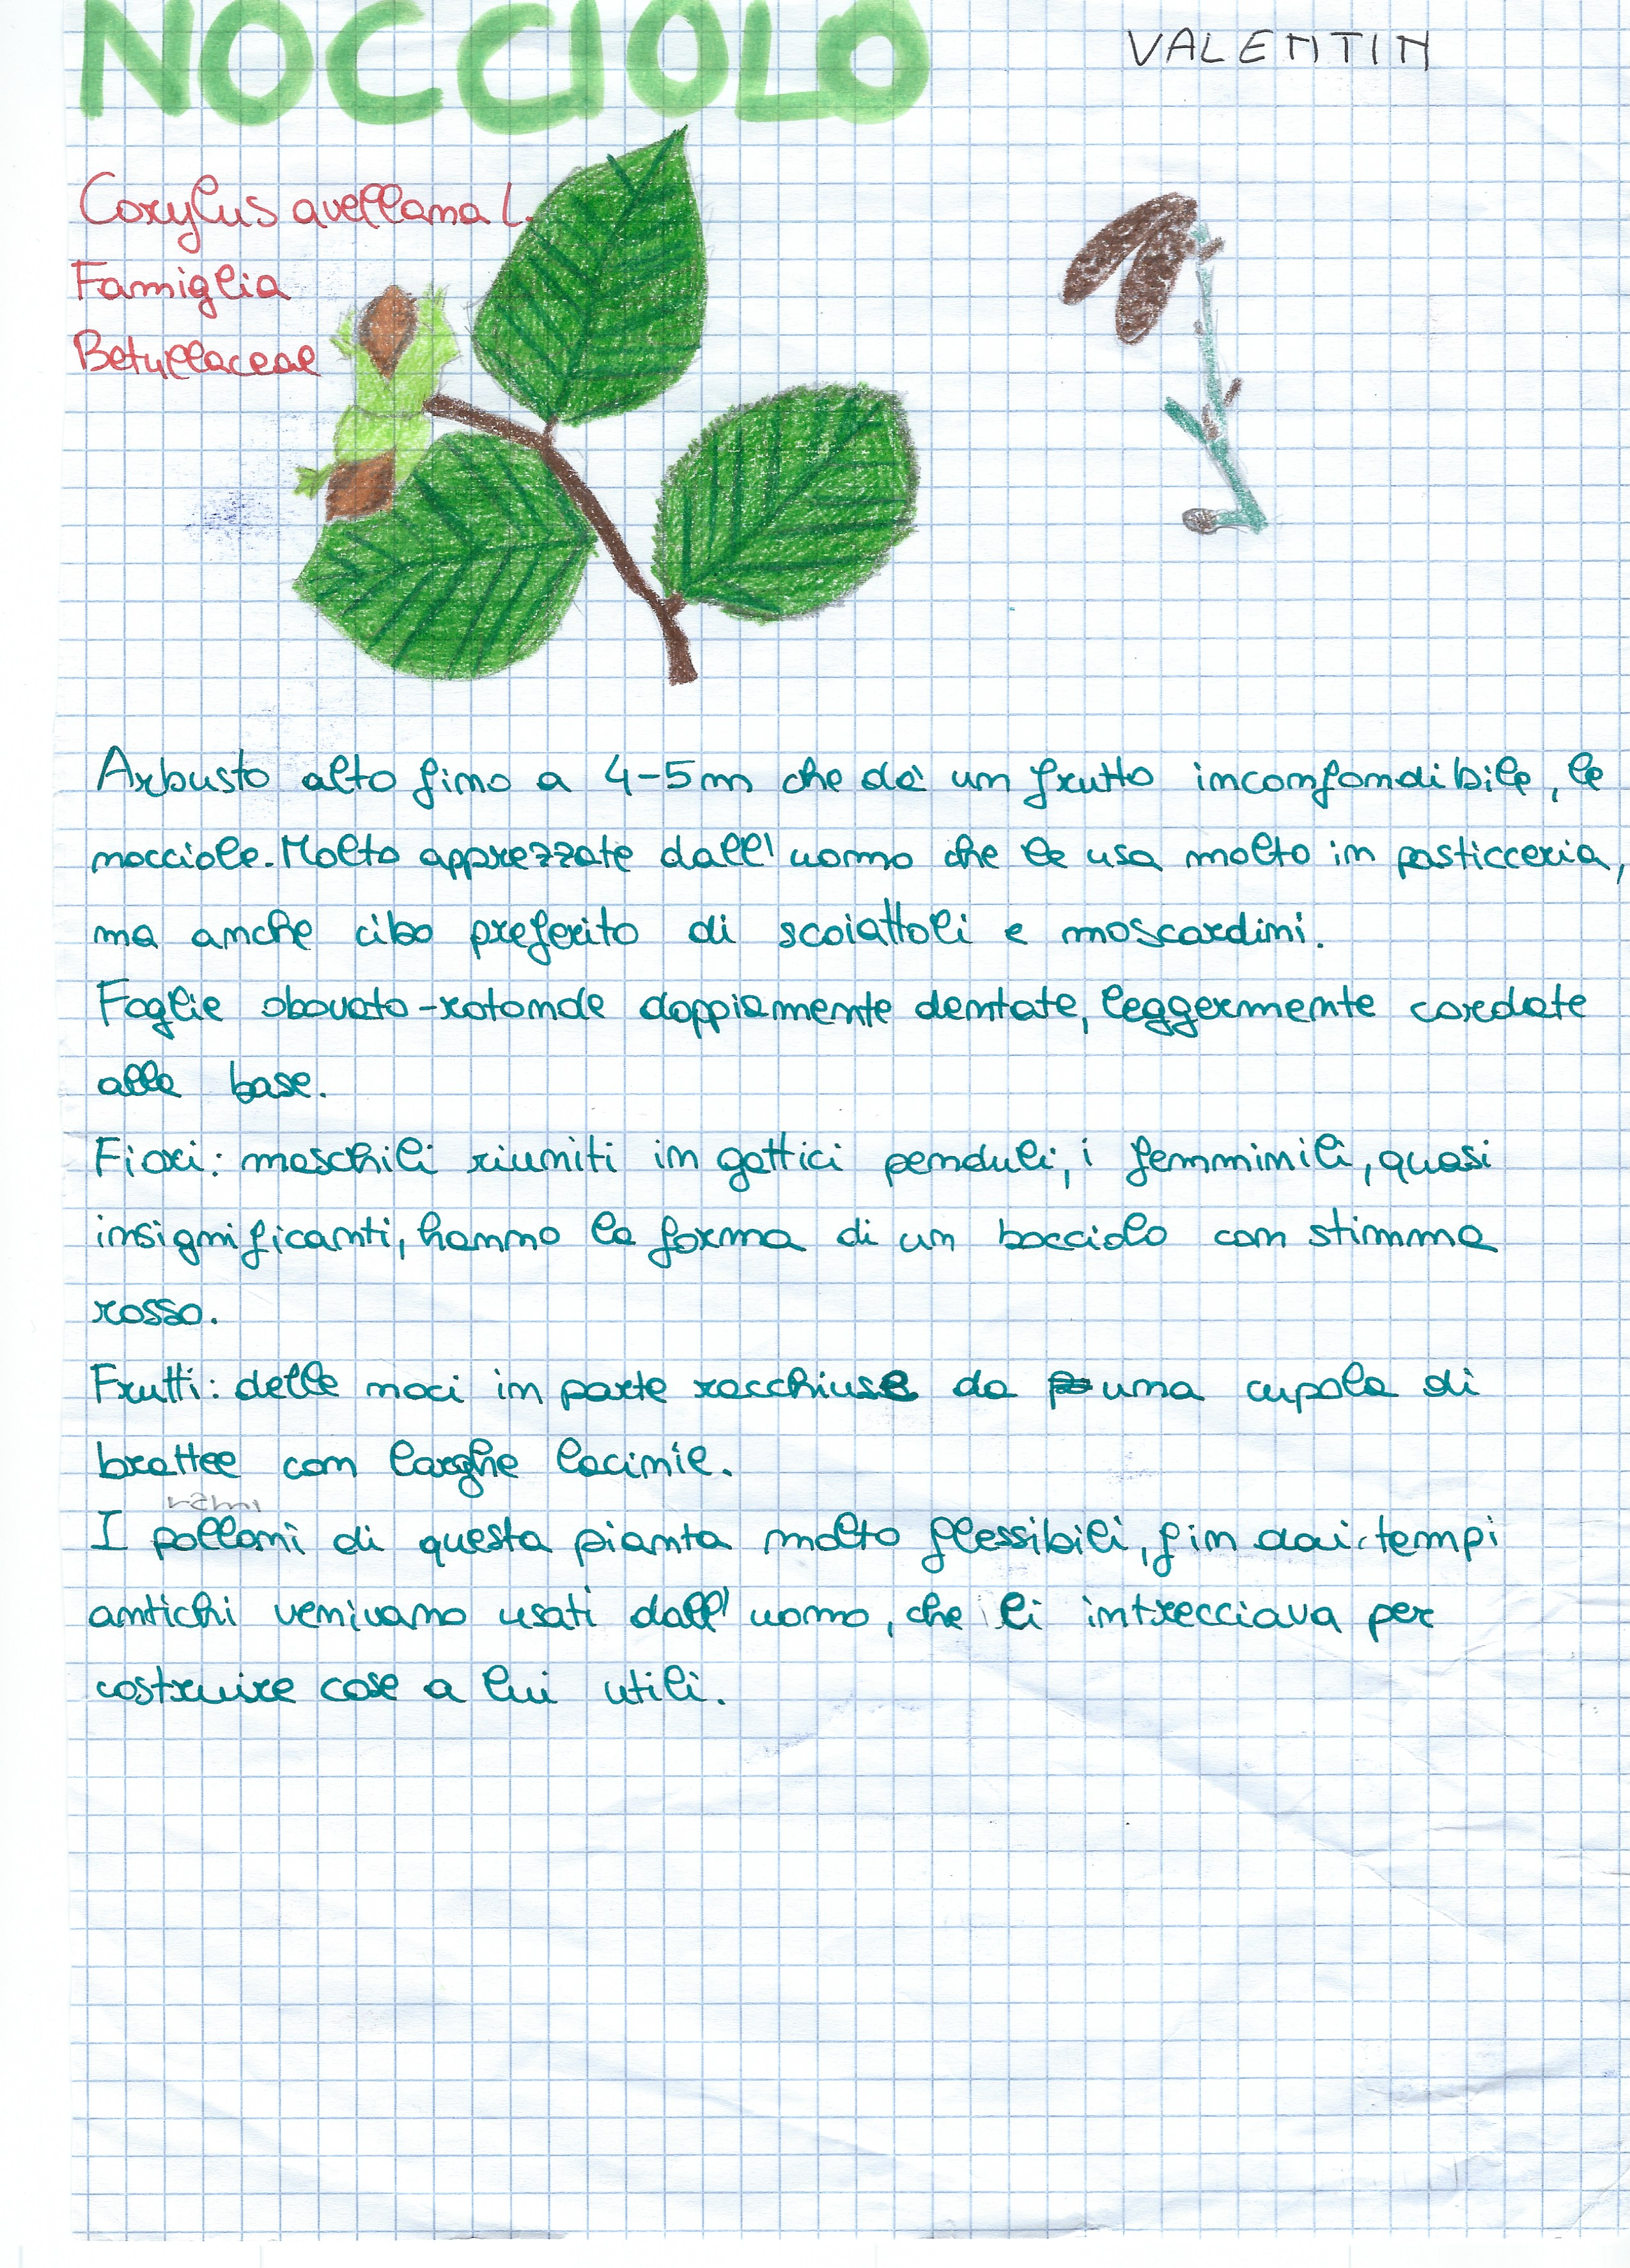 NOCCIOLO
VALENTIN
Corylus avellana L.
Famiglia
Betullaceae
Arbusto alto fino a 4-5m che dà un frutto inconfondibile, le
nocciole. Molto apprezzate dall'uomo che le usa molto in pasticceria,
ma anche cibo preferito di scoiattoli e moscardini.
Foglie obovato-rotonde doppiamente dentate, leggermente cordate
alla base.
Fiori: maschili riuniti in gattici penduli, i femminili, quasi
insignificanti, hanno la forma di un bocciolo con stimma
rosso.
Frutti: delle noci in parte racchiuse da una cupola di
brattee con larghe lacinie.
rami
I polloni di questa pianta molto flessibili, fin dai tempi
antichi venivano usati dall'uomo, che li intrecciava per
costruire cose a lui utili.